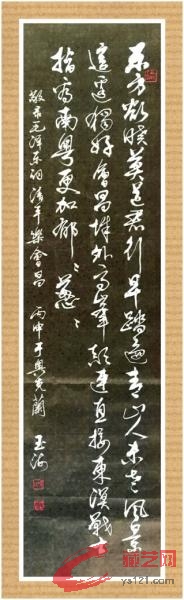 东方欲晓莫道君行早踏遍青山人未老风景
这边独好会昌城外高峰颠连直接東溟戰士
指看南粤更加郁〻葱〻
敬书毛泽东词清平樂會昌 丙申于奥克蘭
玉海
藏艺网
ys121.com